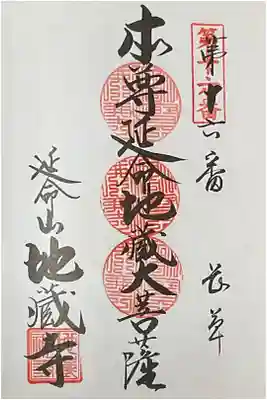 第十六番 長草
本尊延命地蔵大菩薩
延命山地蔵寺